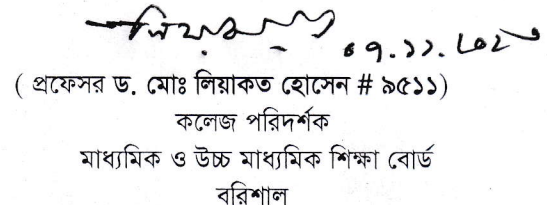 ০৭.১১.২০২
(প্রফেসর ড. মোঃ লিয়াকত হোসেন # ৯৫১১)
কলেজ পরিদর্শক
মাধ্যমিক ও উচ্চ মাধ্যমিক শিক্ষা বোর্ড
বরিশাল